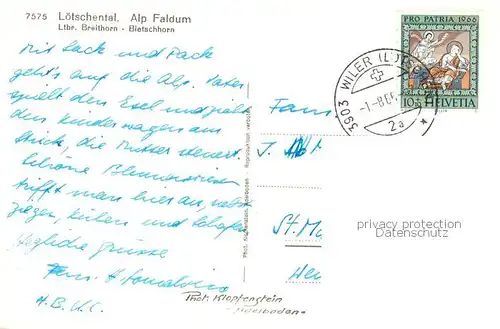 7575 Lötschental. Alp Faldum
Ltbr. Breithorn - Bietschhorn
Mit Sack und Pack
geht's auf die Alp. Vater
spielt den Esel und zieht
den Kinderwagen am
Strick, die Mutter steuert.
Schöne Blumenwiesen
trifft man hier an, nebst
Ziegen, Kühen und Schafen
Herzliche Grüsse
H.B.U.C.
Phot. Klopfenstein, Adelboden - Reproduktion verboten
PRO PATRIA 1966
10 HELVETIA
3903 WILER (LÖTSCH
2a
Fam
J.
St. M
privacy protection
Datenschutz
Phot. Klopfenstein
Adelboden